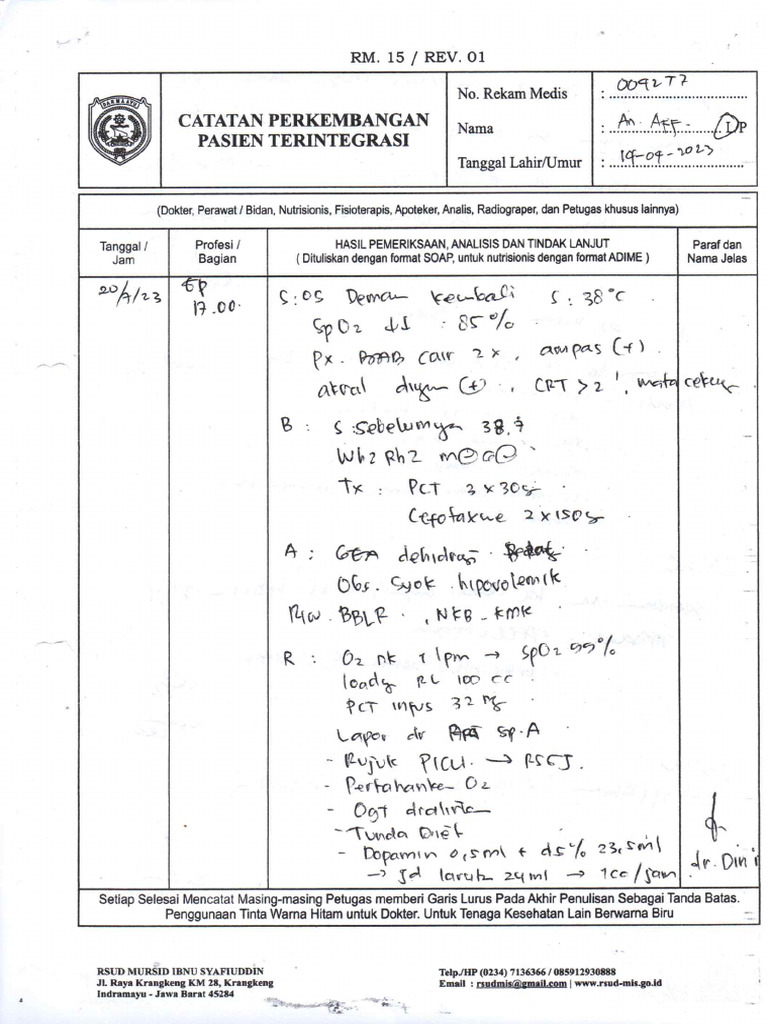 RM. 15 / REV. 01
DARMA AYU
CATATAN PERKEMBANGAN
PASIEN TERINTEGRASI
No. Rekam Medis : 0092T7
Nama : An. AFF. L P
Tanggal Lahir/Umur : 19-04-2023
(Dokter, Perawat / Bidan, Nutrisionis, Fisioterapis, Apoteker, Analis, Radiograper, dan Petugas khusus lainnya)
Tanggal /
Jam
Profesi /
Bagian
HASIL PEMERIKSAAN, ANALISIS DAN TINDAK LANJUT
( Dituliskan dengan format SOAP, untuk nutrisionis dengan format ADIME )
Paraf dan
Nama Jelas
20/7/23
17.00
S : OS Demam kembali S : 38°C
SpO2 ↓↓ : 85%
Px. BAB cair 2x, ampas (+).
akral dingin (+), CRT > 2', mata cekung
B : S : sebelumnya
Wh2 Rh2
Tx : PCT 3 x 30g
Cefotaxime 2 x 150g
A : GEA dehidrasi
Obs. Syok hipovolemik
Riw. BBLR, NKB - KMK
R : O2 nk 1 lpm → SpO2 99%
loading RL 100 cc
PCT infus 32 mg
Lapor dr Sp.A
- Rujuk PICU → RSGJ.
- Pertahankan O2
- Ogt dralirkan
- Tunda Diet
- Dopamin 0,5ml + d5% 23,5ml
→ Jd larutan 24ml → 1cc/jam
dr. Dini
Setiap Selesai Mencatat Masing-masing Petugas memberi Garis Lurus Pada Akhir Penulisan Sebagai Tanda Batas.
Penggunaan Tinta Warna Hitam untuk Dokter. Untuk Tenaga Kesehatan Lain Berwarna Biru
RSUD MURSID IBNU SYAFIUDDIN
Jl. Raya Krangkeng KM 28, Krangkeng
Indramayu - Jawa Barat 45284
Telp./HP (0234) 7136366 / 085912930888
Email : rsudmis@gmail.com | www.rsud-mis.go.id